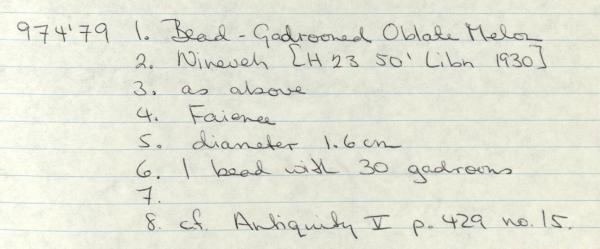 974'79 1. Bead - Gadrooned Oblate Melon
2. Nineveh [H 23 50' Libn 1930]
3. as above
4. Faience
5. diameter 1.6 cm
6. 1 bead with 30 gadroons
7.
8. cf. Antiquity V p. 429 no. 15.